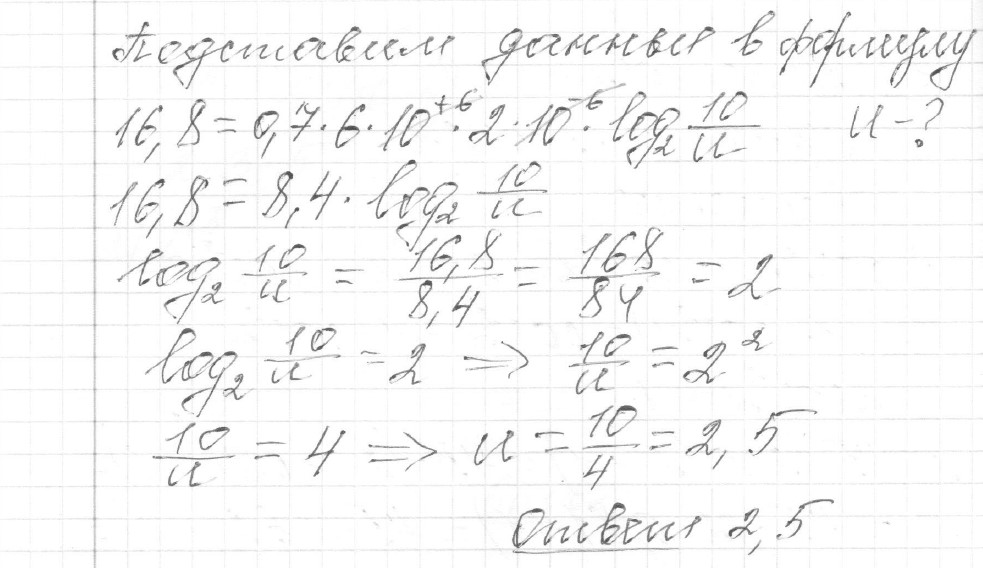 Подставим данные в формулу
16,8 = 0,7·6·10⁺⁶·2·10⁻⁶·log₂ 10/u   u - ?
16,8 = 8,4·log₂ 10/u
log₂ 10/u = 16,8/8,4 = 168/84 = 2
log₂ 10/u = 2 => 10/u = 2²
10/u = 4 => u = 10/4 = 2,5
Ответ 2,5